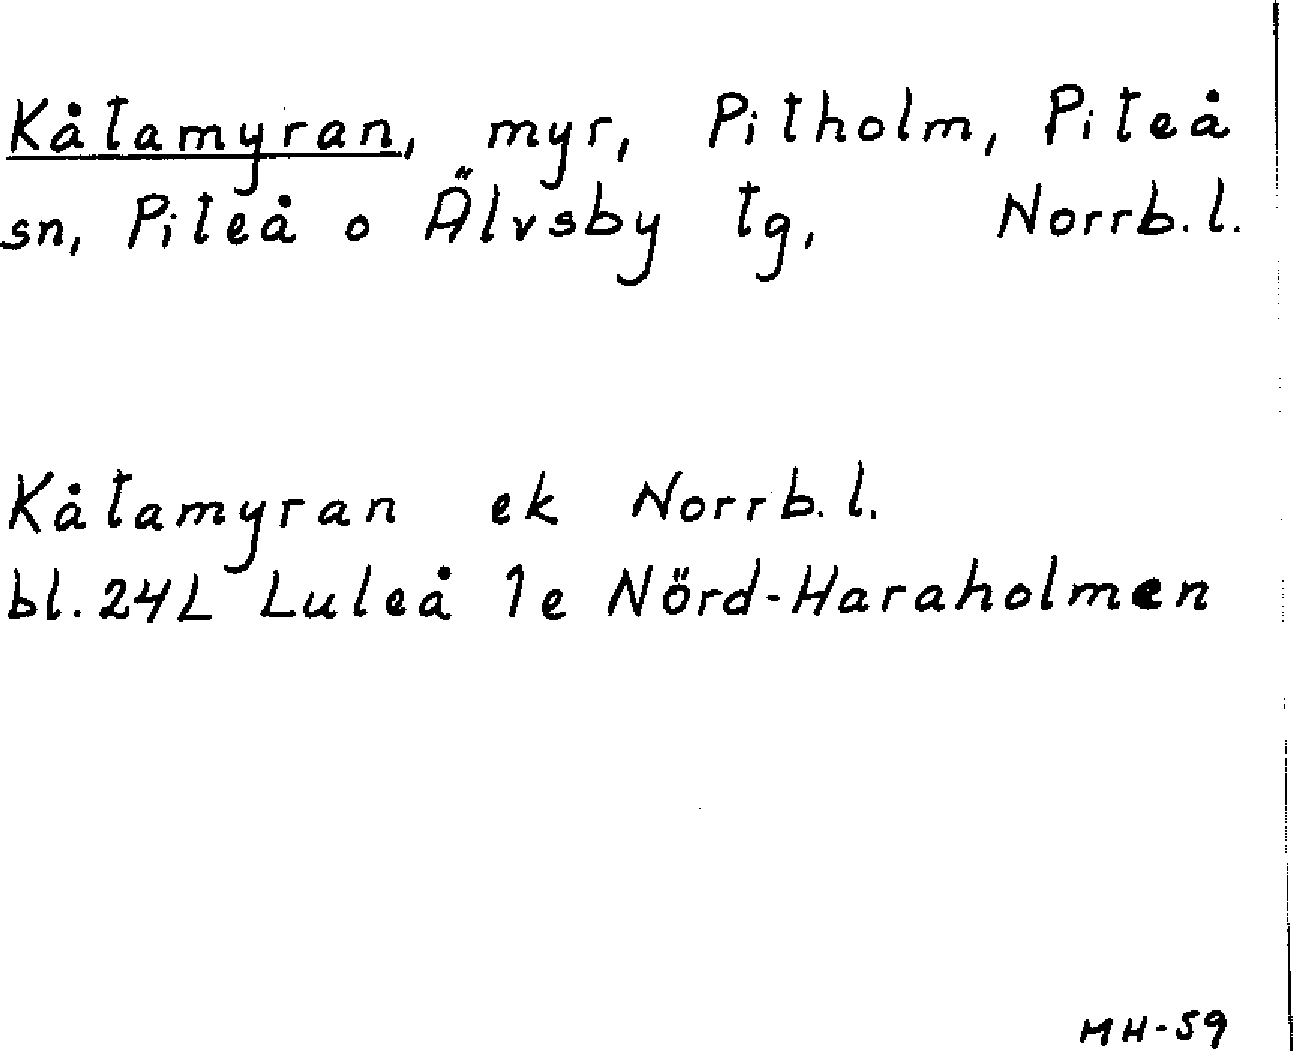 Kåtamyran, myr, Pitholm, Piteå
sn, Piteå o Älvsby tg, Norrb.l.
Kåtamyran ek Norrb.l.
bl. 24L Luleå 1e Nörd-Haraholmen
MH-59